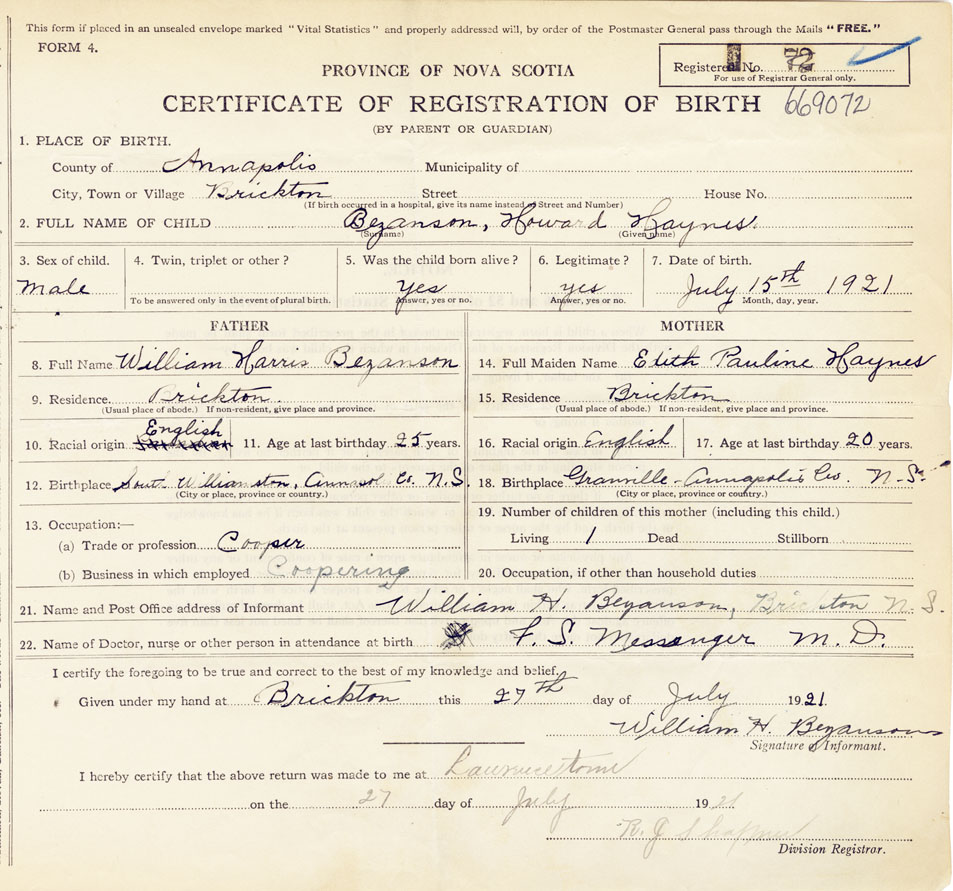 This form if placed in an unsealed envelope marked "Vital Statistics" and properly addressed will, by order of the Postmaster General pass through the Mails "FREE."
FORM 4.
Registered No. 72
For use of Registrar General only.
PROVINCE OF NOVA SCOTIA
CERTIFICATE OF REGISTRATION OF BIRTH 669072
(BY PARENT OR GUARDIAN)
1. PLACE OF BIRTH.
County of Annapolis Municipality of
City, Town or Village Brickton Street House No.
(If birth occurred in a hospital, give its name instead of Street and Number)
2. FULL NAME OF CHILD Bezanson, Howard Haynes.
(Surname) (Given name)
3. Sex of child. 4. Twin, triplet or other? 5. Was the child born alive? 6. Legitimate? 7. Date of birth.
Male yes yes July 15th 1921
To be answered only in the event of plural birth. Answer, yes or no. Answer, yes or no. Month, day, year.
FATHER MOTHER
8. Full Name William Harris Bezanson 14. Full Maiden Name Edith Pauline Haynes
9. Residence. Brickton. 15. Residence Brickton
(Usual place of abode.) If non-resident, give place and province. (Usual place of abode.) If non-resident, give place and province.
10. Racial origin English 11. Age at last birthday 25 years. 16. Racial origin English 17. Age at last birthday 20 years.
12. Birthplace South Williamston, Co. N.S. 18. Birthplace Granville - Annapolis Co. N.S.
(City or place, province or country.) (City or place, province or country.)
13. Occupation:— 19. Number of children of this mother (including this child.)
(a) Trade or profession Cooper Living 1 Dead Stillborn
(b) Business in which employed Coopering 20. Occupation, if other than household duties
21. Name and Post Office address of Informant William H. Bezanson, Brickton N.S.
22. Name of Doctor, nurse or other person in attendance at birth F. S. Messenger M.D.
I certify the foregoing to be true and correct to the best of my knowledge and belief.
Given under my hand at Brickton this 27th day of July 1921.
William H. Bezanson
Signature of Informant.
I hereby certify that the above return was made to me at Lawrencetown
on the 27 day of July 1921
Division Registrar.